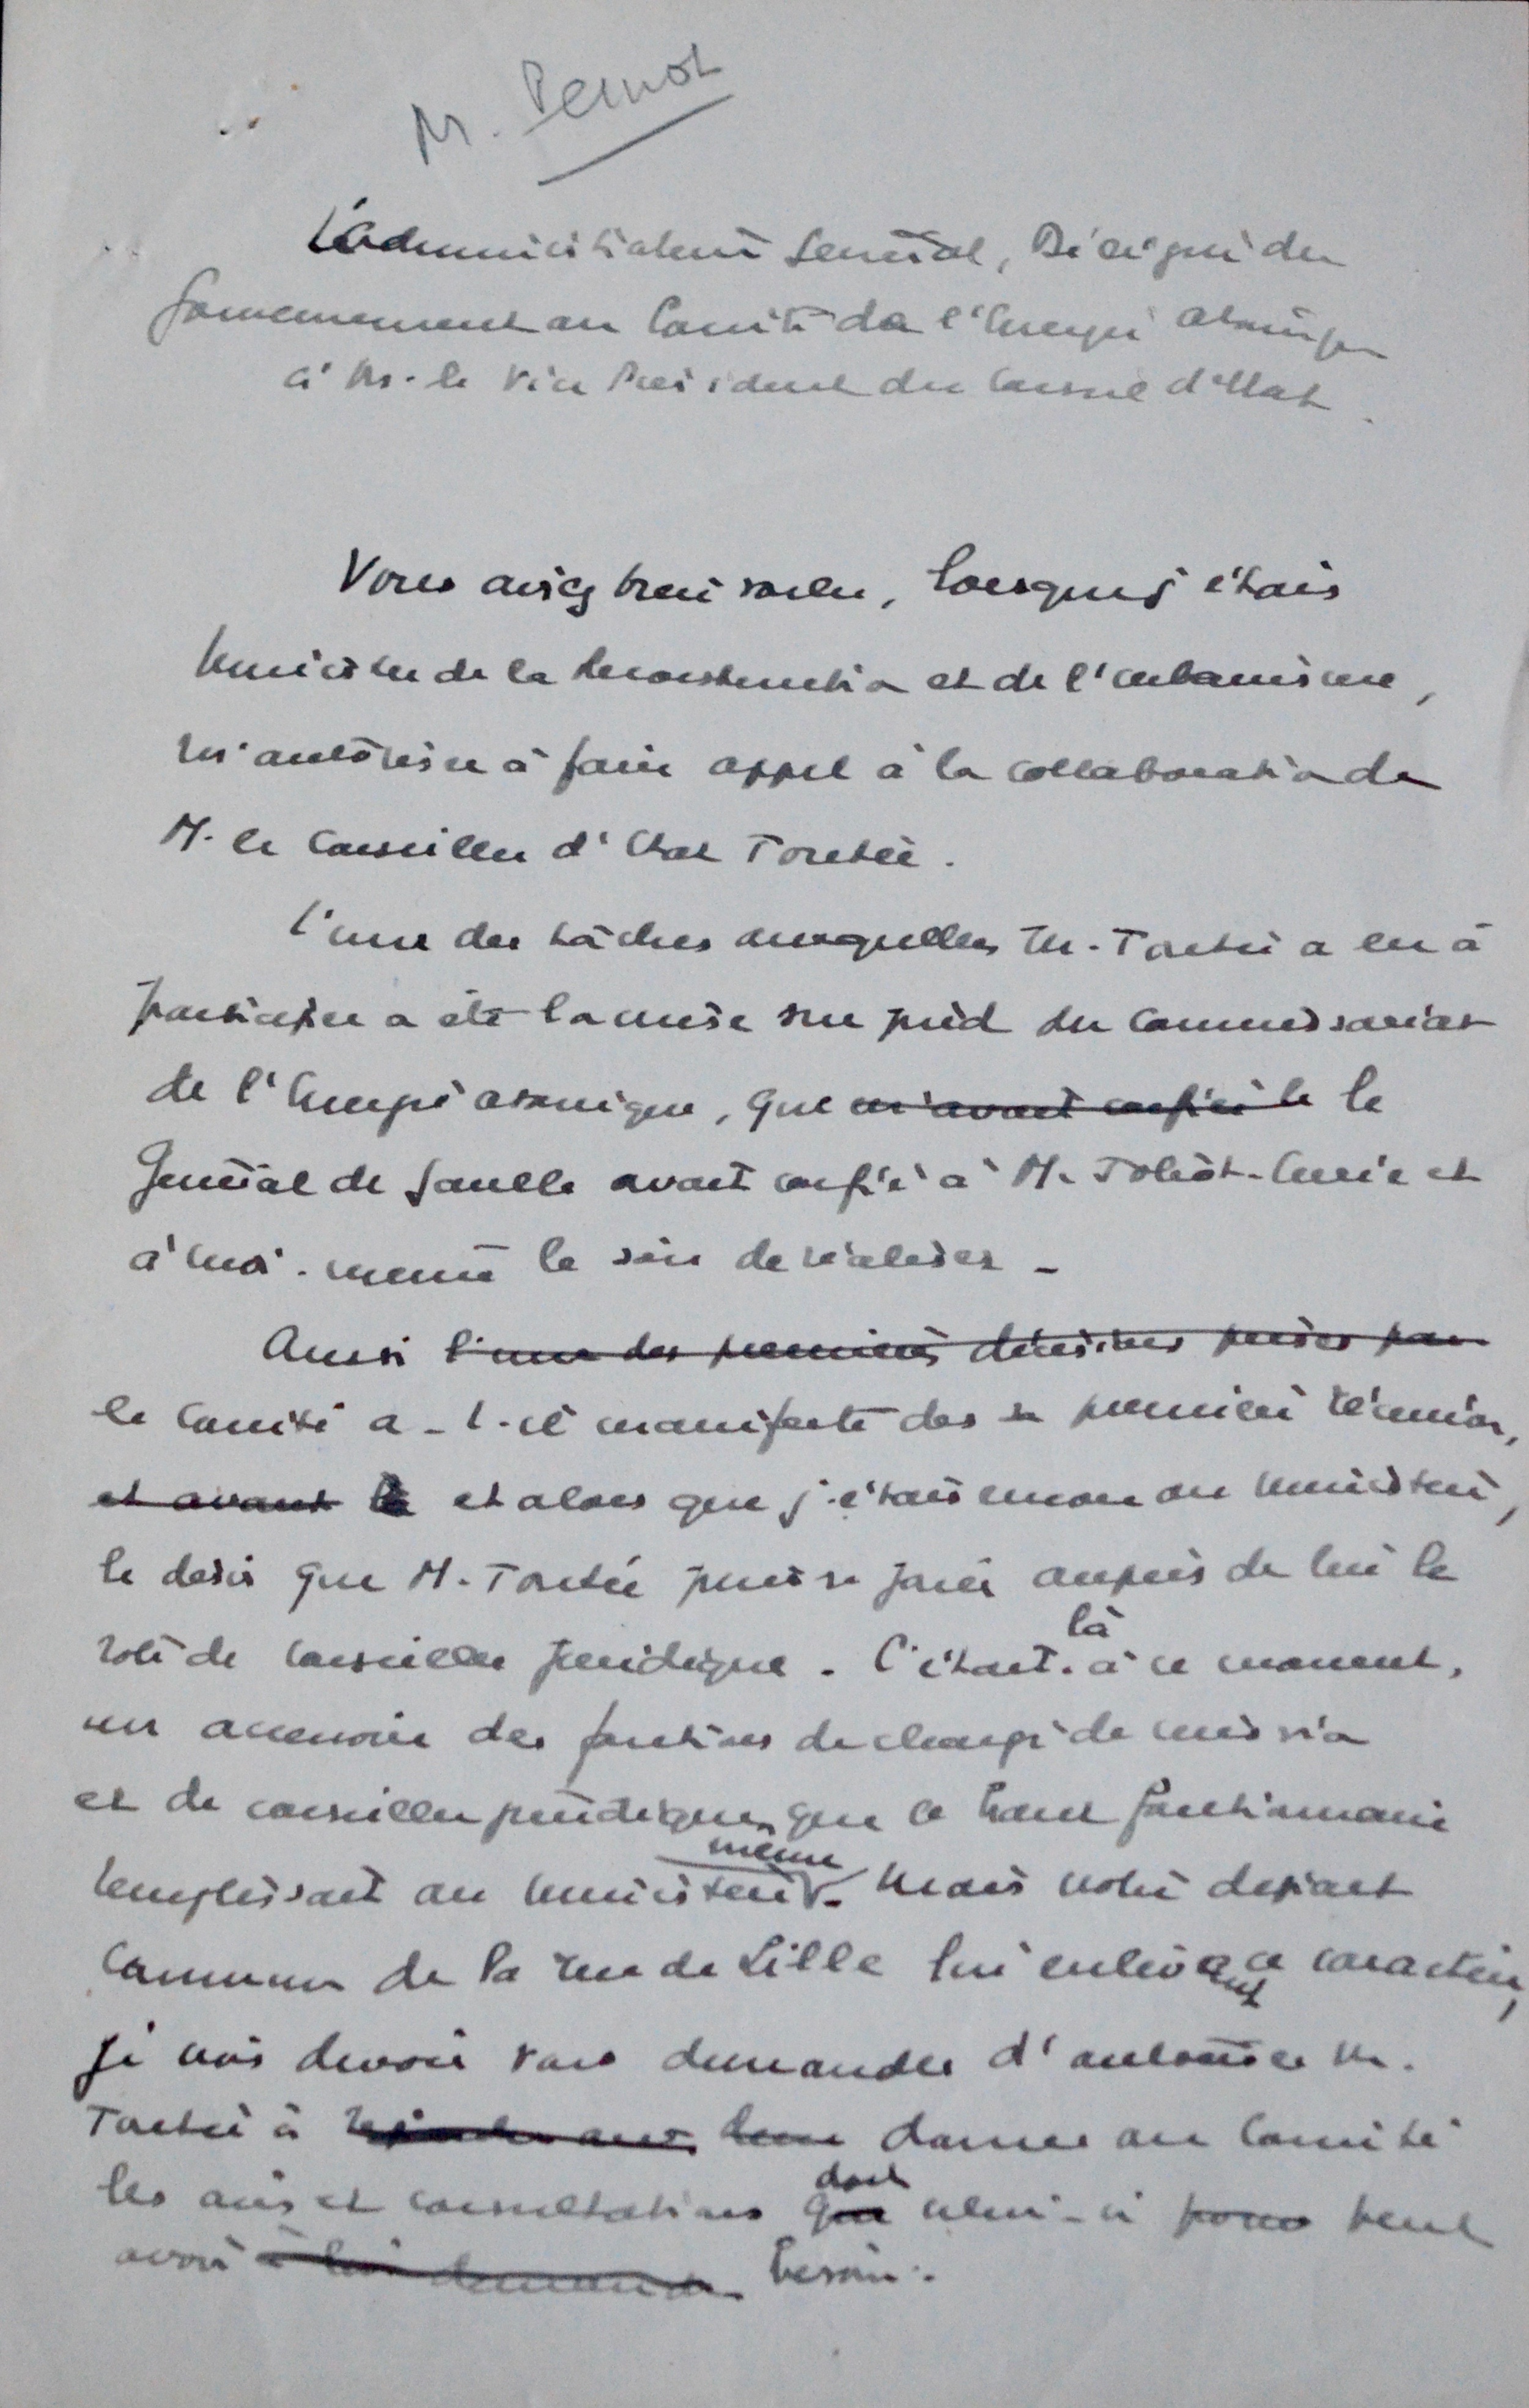 M. Pernot
L'Administrateur Général, Délégué du
Gouvernement au Comité de l'Energie atomique
à M. le Vice Président du Conseil d'Etat.
Vous aviez bien voulu, lorsque j'étais
Ministre de la Reconstruction et de l'urbanisme,
m'autoriser à faire appel à la collaboration de
M. le Conseiller d'Etat Toutée.
L'une des tâches auxquelles M. Toutée a eu à
participer a été la mise sur pied du Commissariat
de l'Energie atomique, que m'avait confié le le
Général de Gaulle avait confié à M. Joliot-Curie et
à moi-même le soin de réaliser -
Aussi l'une des premières décisions prises par
le Comité a-t-il manifesté dès sa première réunion,
et avant la et alors que j'étais encore au Ministère,
le désir que M. Toutée puisse jouer auprès de lui le
rôle de conseiller juridique. C'était là à ce moment,
un accessoire des fonctions de chargé de mission
et de conseiller juridique que ce haut fonctionnaire
remplissait au ministère même. Mais notre départ
commun de la rue de Lille lui enlevant ce caractère,
je crois devoir vous demander d'autoriser M.
Toutée à donner au Comité
les avis et consultations que dont celui-ci pour peut
avoir à lui demander besoin.